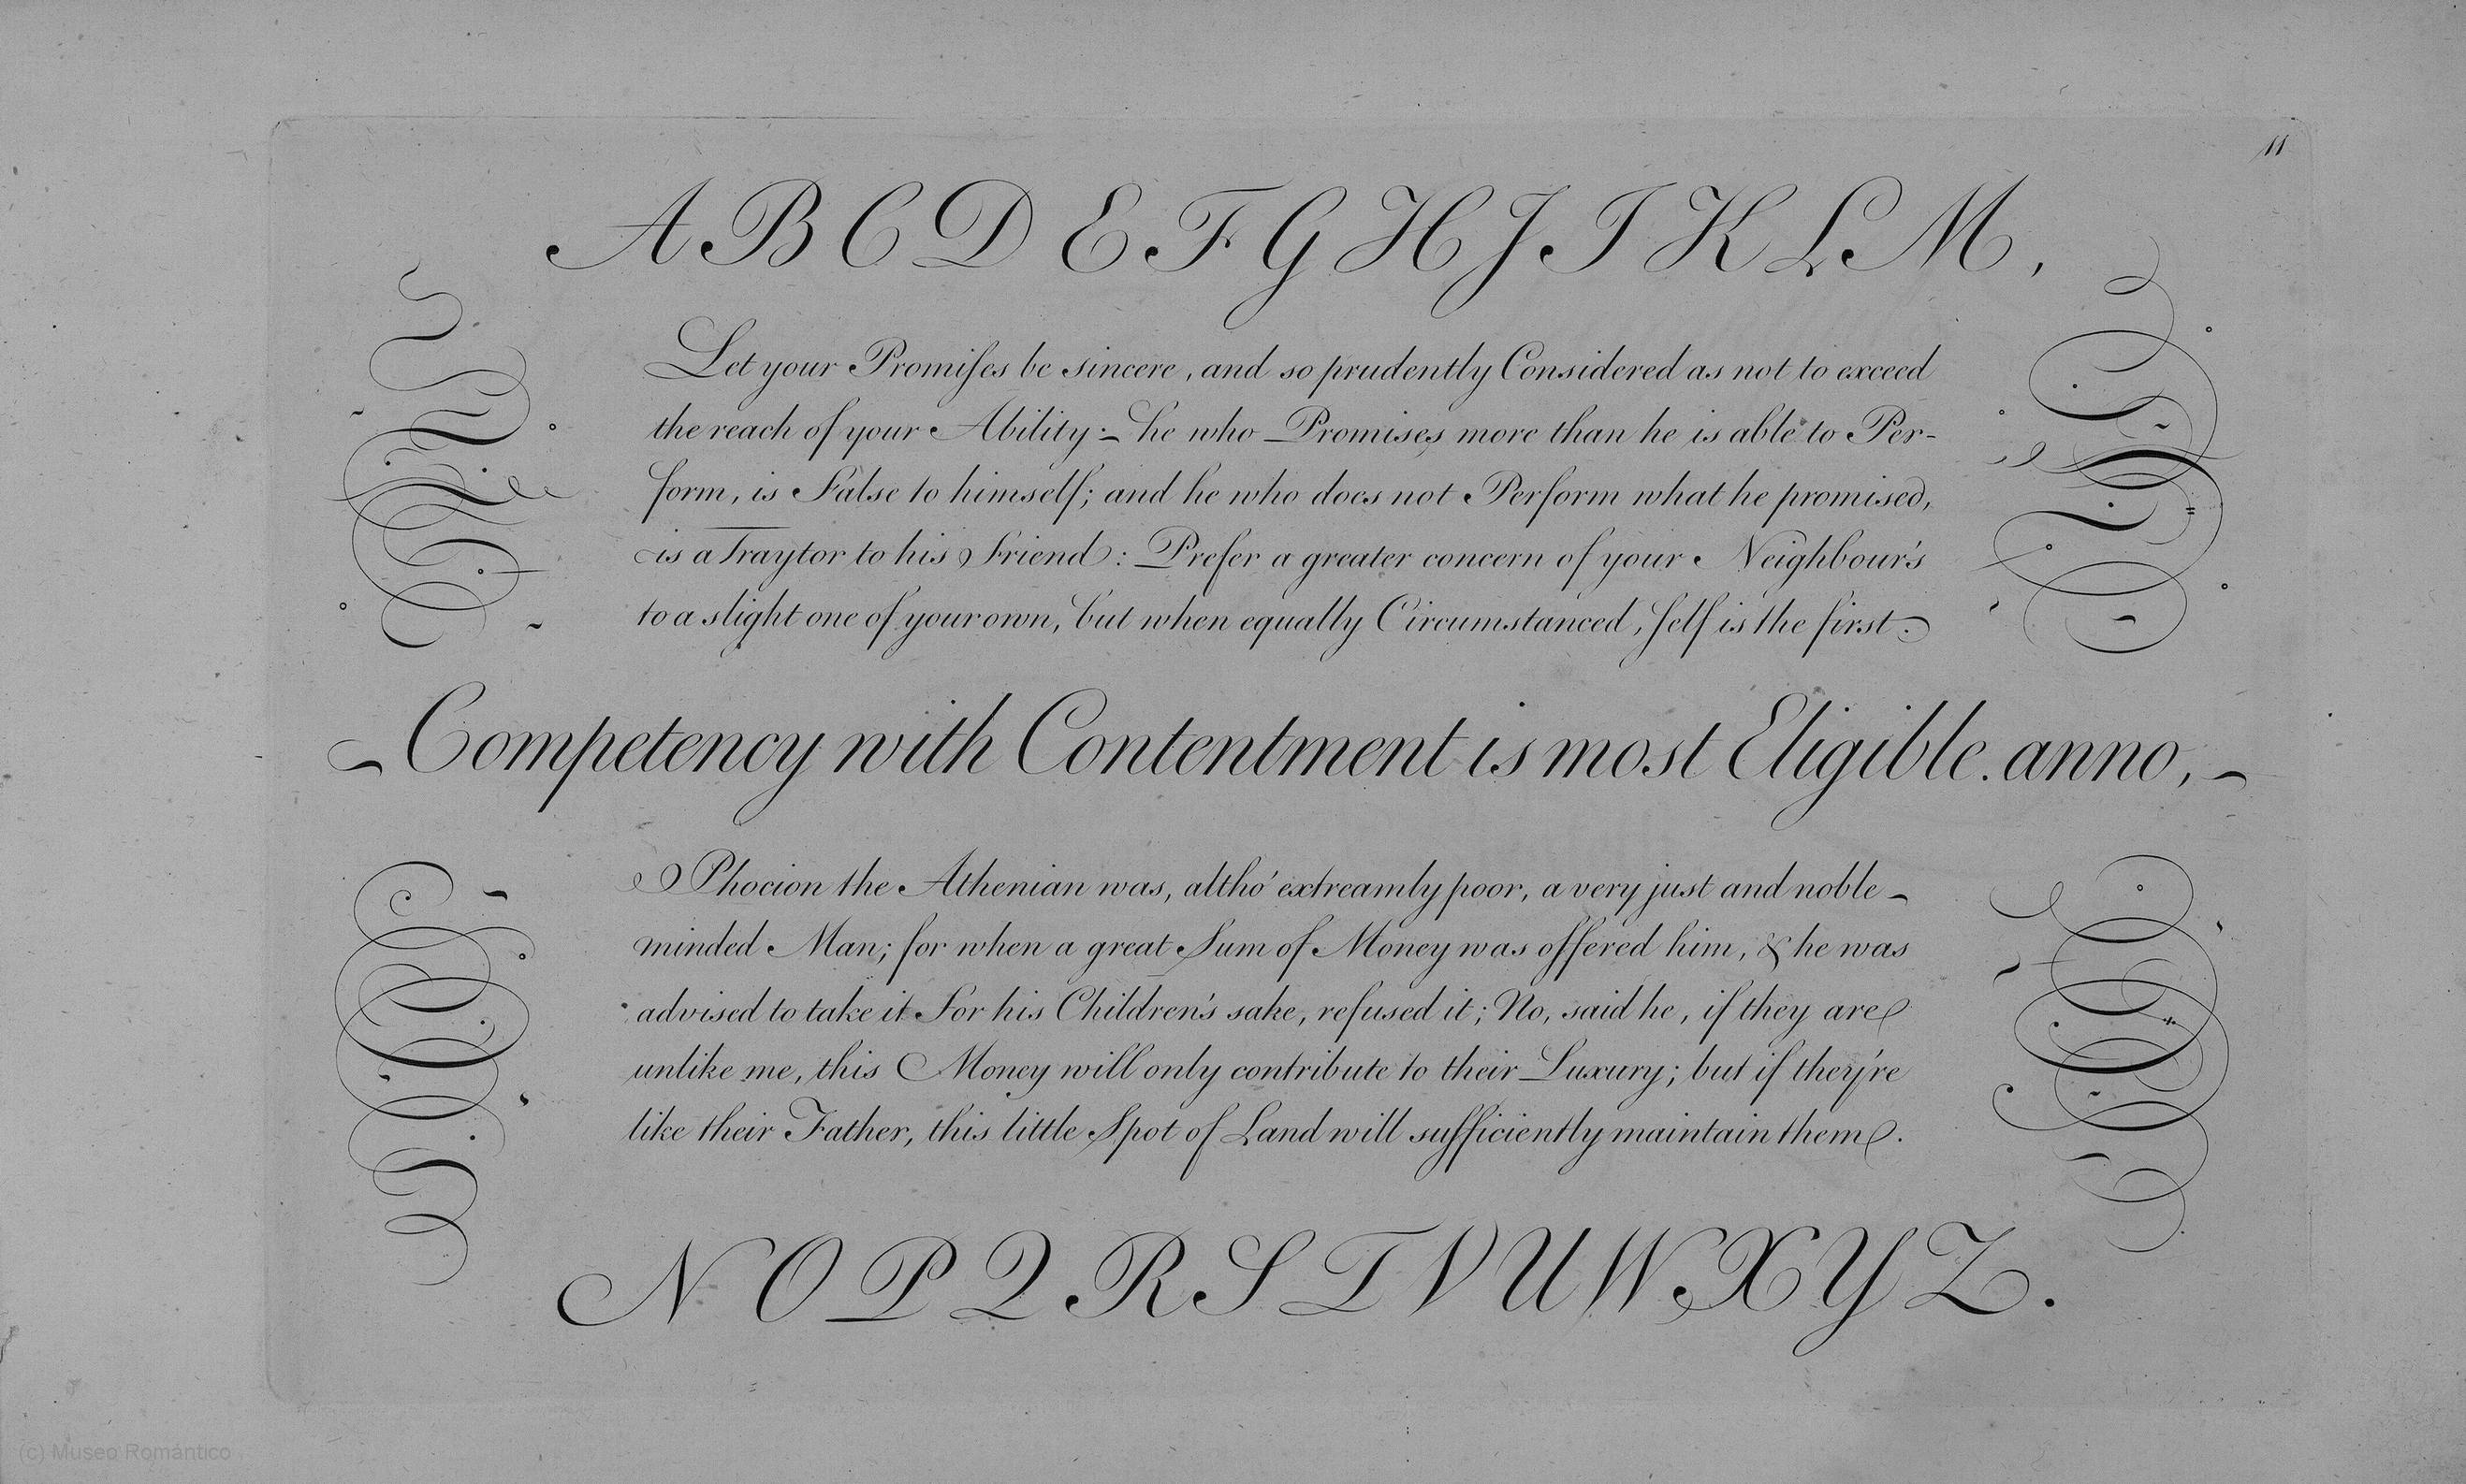 11
A B C D E F G H J I K L M,
Let your Promiſes be sincere, and so prudently Considered as not to exceed
the reach of your Ability:– he who Promises more than he is able to Per-
form, is False to himself; and he who does not Perform what he promised,
is a Traytor to his Friend: Prefer a greater concern of your Neighbour's
to a slight one of your own, but when equally Circumstanced, ſelf is the first.
Competency with Contentment is most Eligible. anno,
Phocion the Athenian was, altho' extreamly poor, a very just and noble-
minded Man; for when a great Sum of Money was offered him, & he was
advised to take it For his Children's sake, refused it; No, said he, if they are
unlike me, this Money will only contribute to their Luxury; but if they're
like their Father, this little Spot of Land will sufficiently maintain them.
N O P Q R S T V U W X Y Z.
(c) Museo Romántico